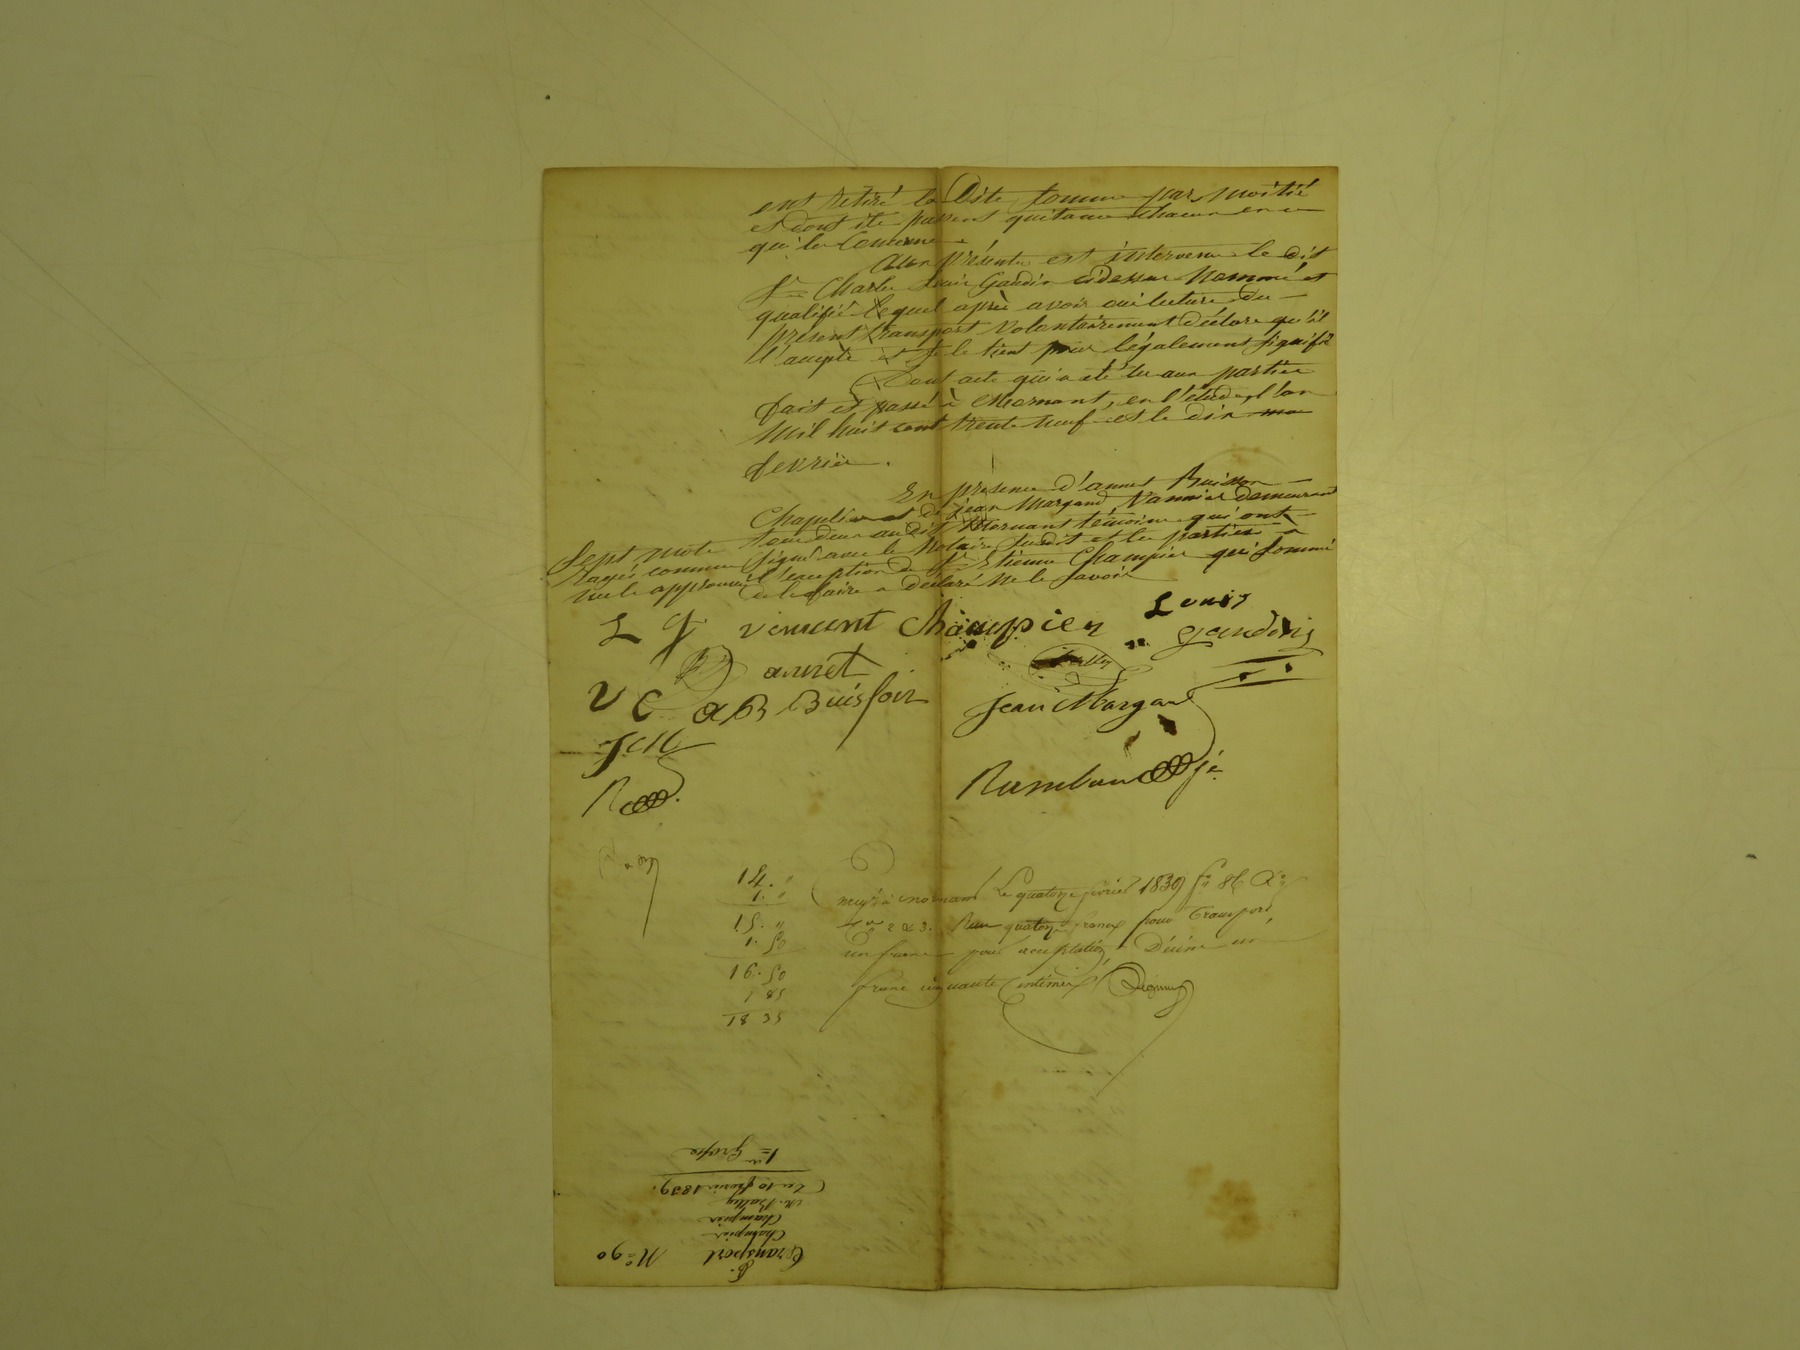 ont retiré la Dite somme par moitié
et dont ils passent quitance chacun en ce
qui les Concerne.
Aux présentes est intervenu le dit
Sr Charles Louis Gaudin cidessus Nommé et
qualifié lequel après avoir oui lecture du
présent transport volontairement déclare qu'il
l'accepte et se le tient pour légalement signifié
Dont acte qui a été lu aux parties
fait et passé à Mornant, en l'étude, l'an
Mil huit cent trente neuf et le dix
fevrier.
En présence d'annet Buisson
Chapelier et de Jean Margand Vannier demeurant
tous deux au dit Mornant témoins qui ont
signé avec le Notaire susdit et les parties à
l'exception de Sr Etienne Champier qui sommé
de le faire a déclaré Ne le savoir
Sept mots
Rayés comme
nuls approuvé
L G vincent Champier Louis
gaudin
annet
V C a B Buisson
Jean Margand
JM
Rambaud
R
14. "
1. "
15. "
1. 50
16. 50
1 85
18 35
à mornant Le quatorze fevrier 1839 fo 86
quatorze francs pour Transport,
un franc pour acceptation Décime un
franc cinquante centimes
No 90
Transport
Champier
Champier
M. Bally
Du 10 fevrier 1839.
1re Grosse